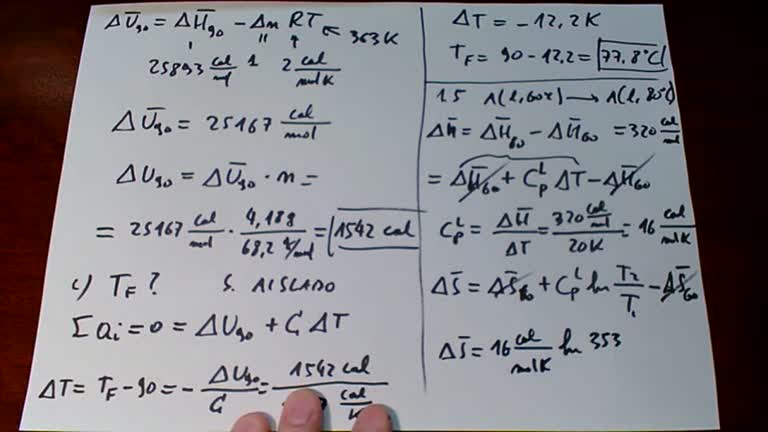 ΔŪ90 = ΔH̄90 - Δn RT ← 363K
25893 cal/ml 1 2 cal/molK
ΔŪ90 = 25167 cal/mol
ΔU90 = ΔŪ90 · n =
= 25167 cal/mol · 4,18g / 68,2 g/mol = 1542 cal
c) TF? S. AISLADO
Σ Qi = 0 = ΔU90 + C ΔT
ΔT = TF - 90 = - ΔU90 / C = 1542 cal / cal/K
ΔT = -12,2 K
TF = 90 - 12,2 = 77,8°C
15 A(l, 60°C) → A(l, 80°C)
ΔH̄ = ΔH̄80 - ΔH̄60 = 320 cal/ml
= ΔH̄60 + CpL ΔT - ΔH̄60
CpL = ΔH̄/ΔT = 320 cal/ml / 20K = 16 cal/mlK
ΔS̄ = ΔS̄60 + CpL ln T2/T1 - ΔS̄60
ΔS̄ = 16 cal/molK ln 353